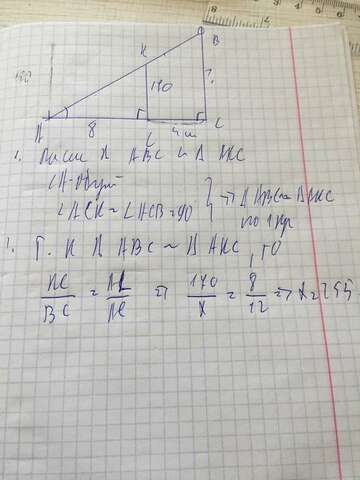 B
K
170
?
A
8
L
4 м
C
1. Рассм Δ ABC и Δ AKC
∠A-общий
∠ACK = ∠ACB = 90
⇒ Δ ABC ~ Δ AKC
по 1 пр
1. Т. К Δ ABC ~ Δ AKC, то
KC/BC = AL/AC ⇒ 170/x = 8/12 ⇒ x = 255